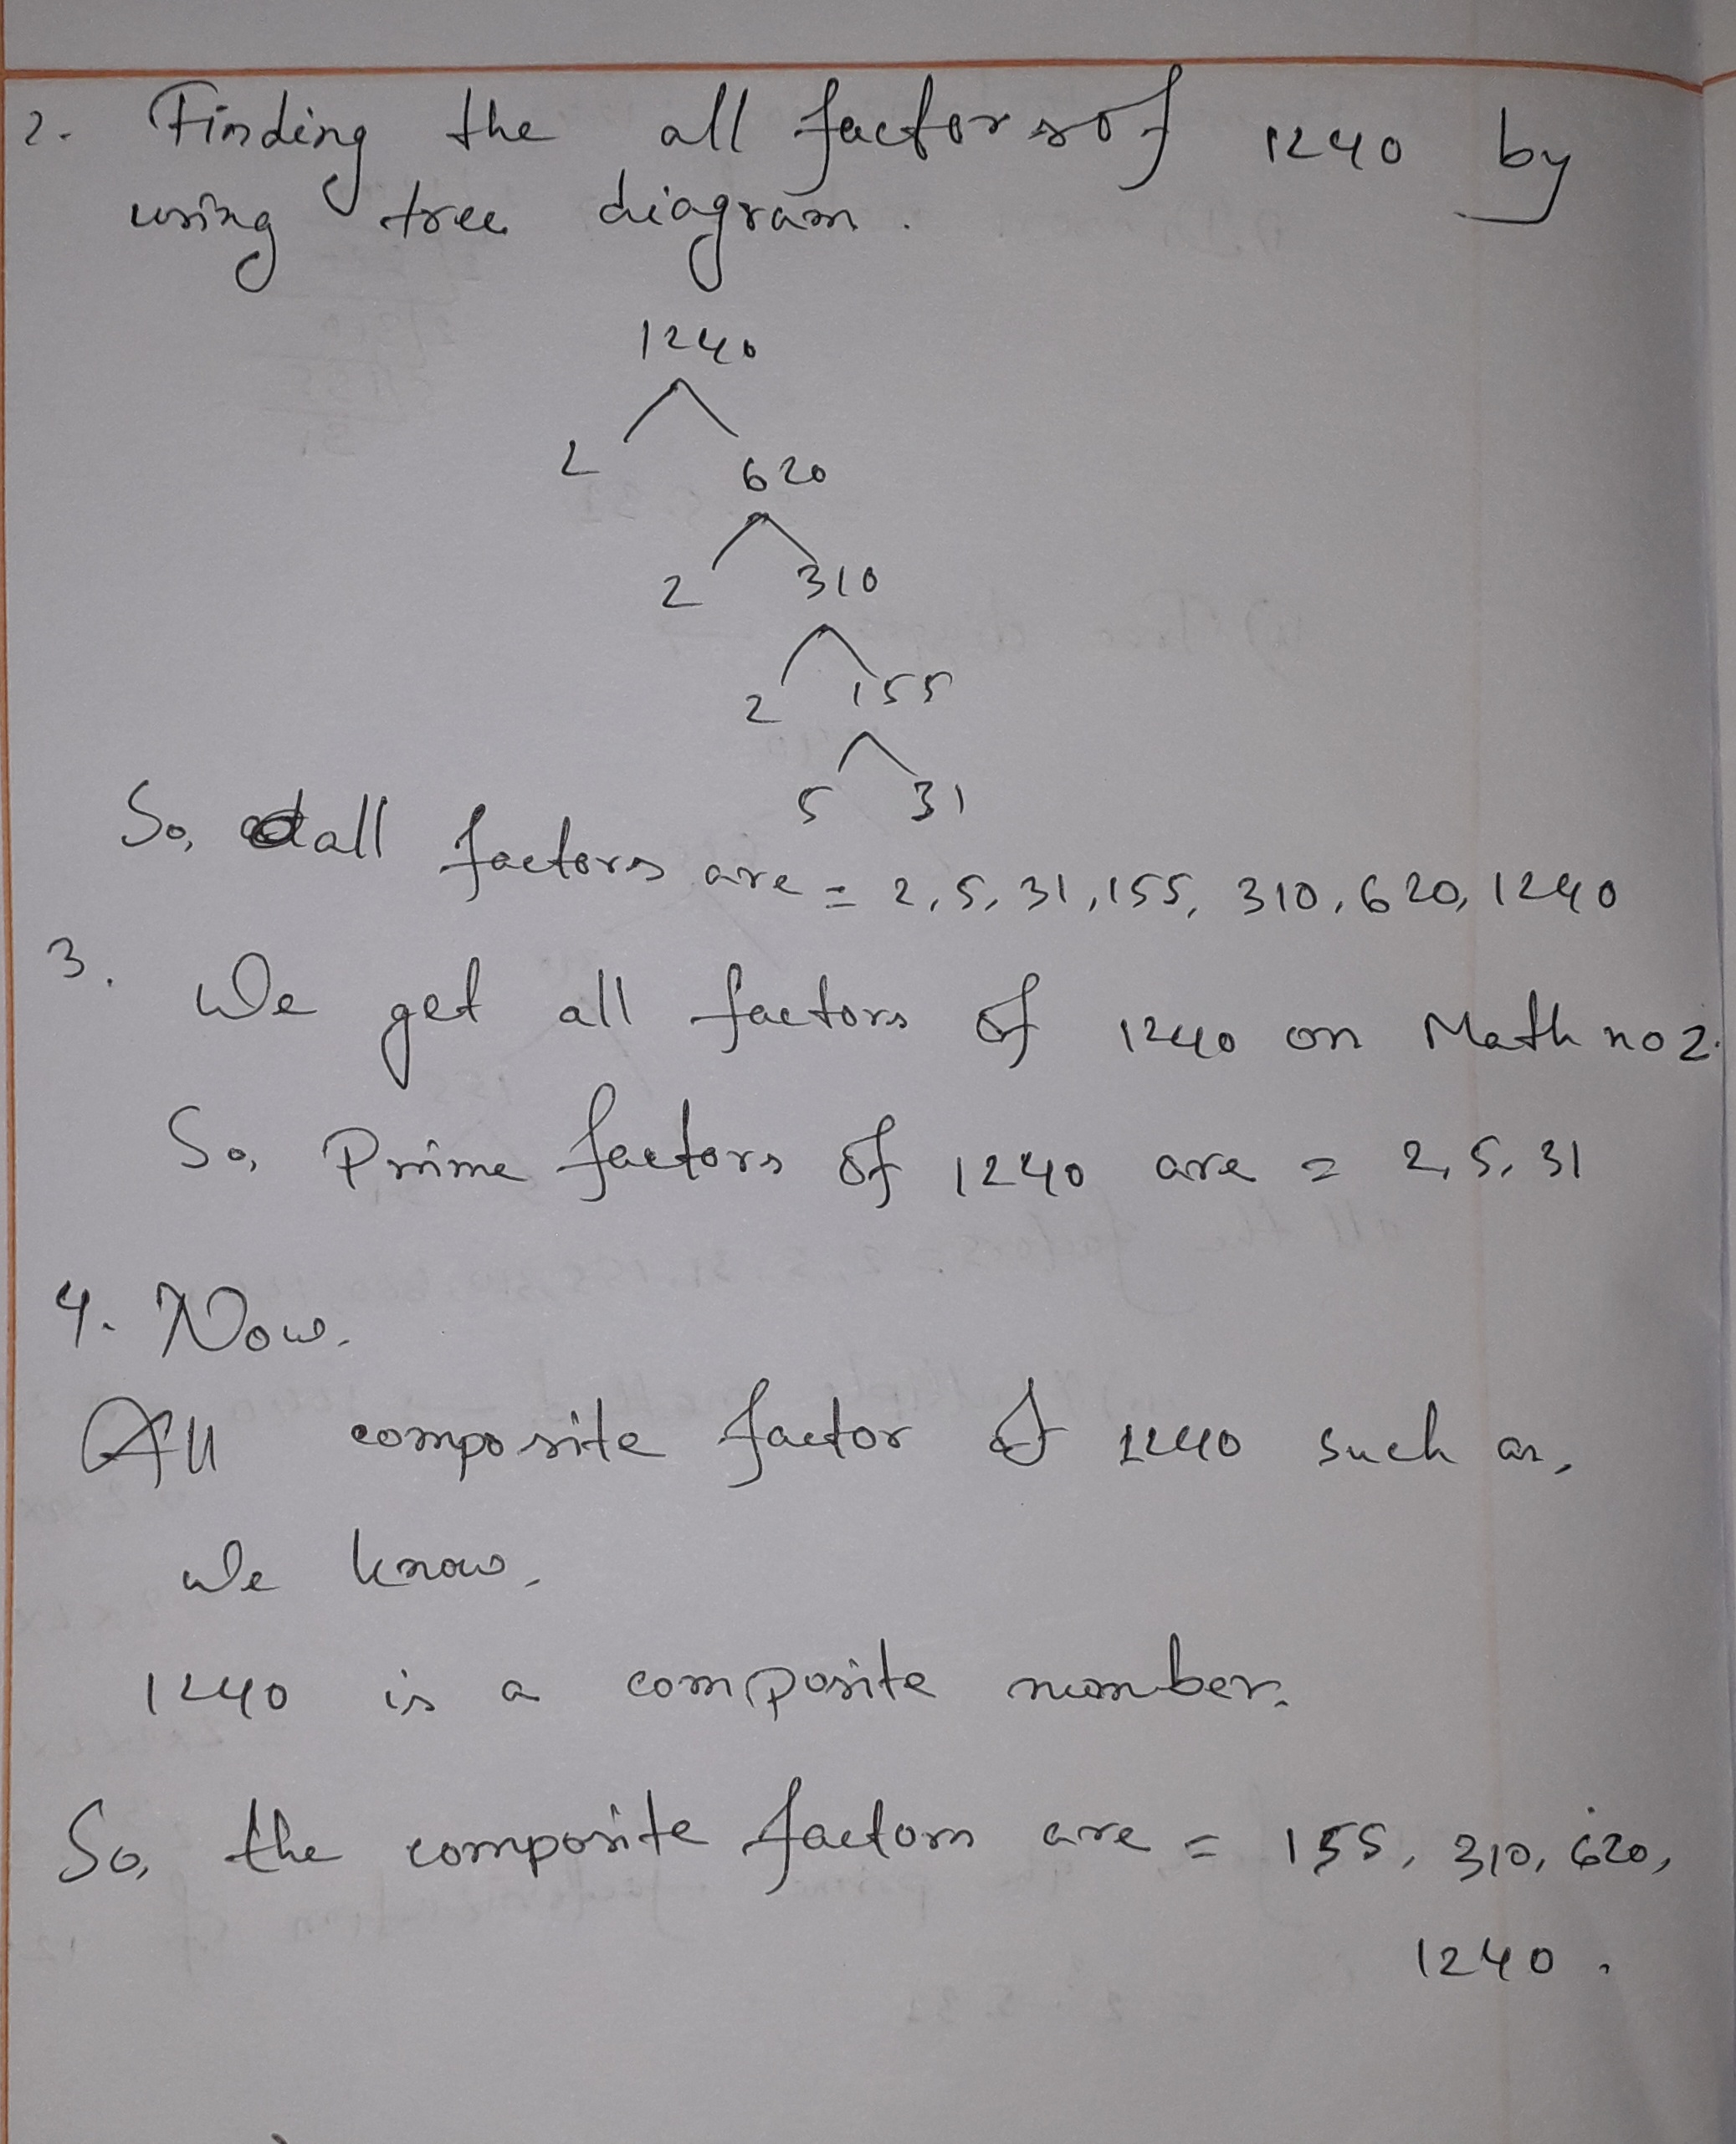 2. Finding the all factors of 1240 by
using tree diagram.
1240
2 620
2 310
2 155
5 31
So, all factors are = 2, 5, 31, 155, 310, 620, 1240
3. We get all factors of 1240 on Math no 2.
So, Prime factors of 1240 are = 2, 5, 31
4. Now,
All composite factor of 1240 such as,
We know,
1240 is a composite number.
So, the composite factors are = 155, 310, 620,
1240.